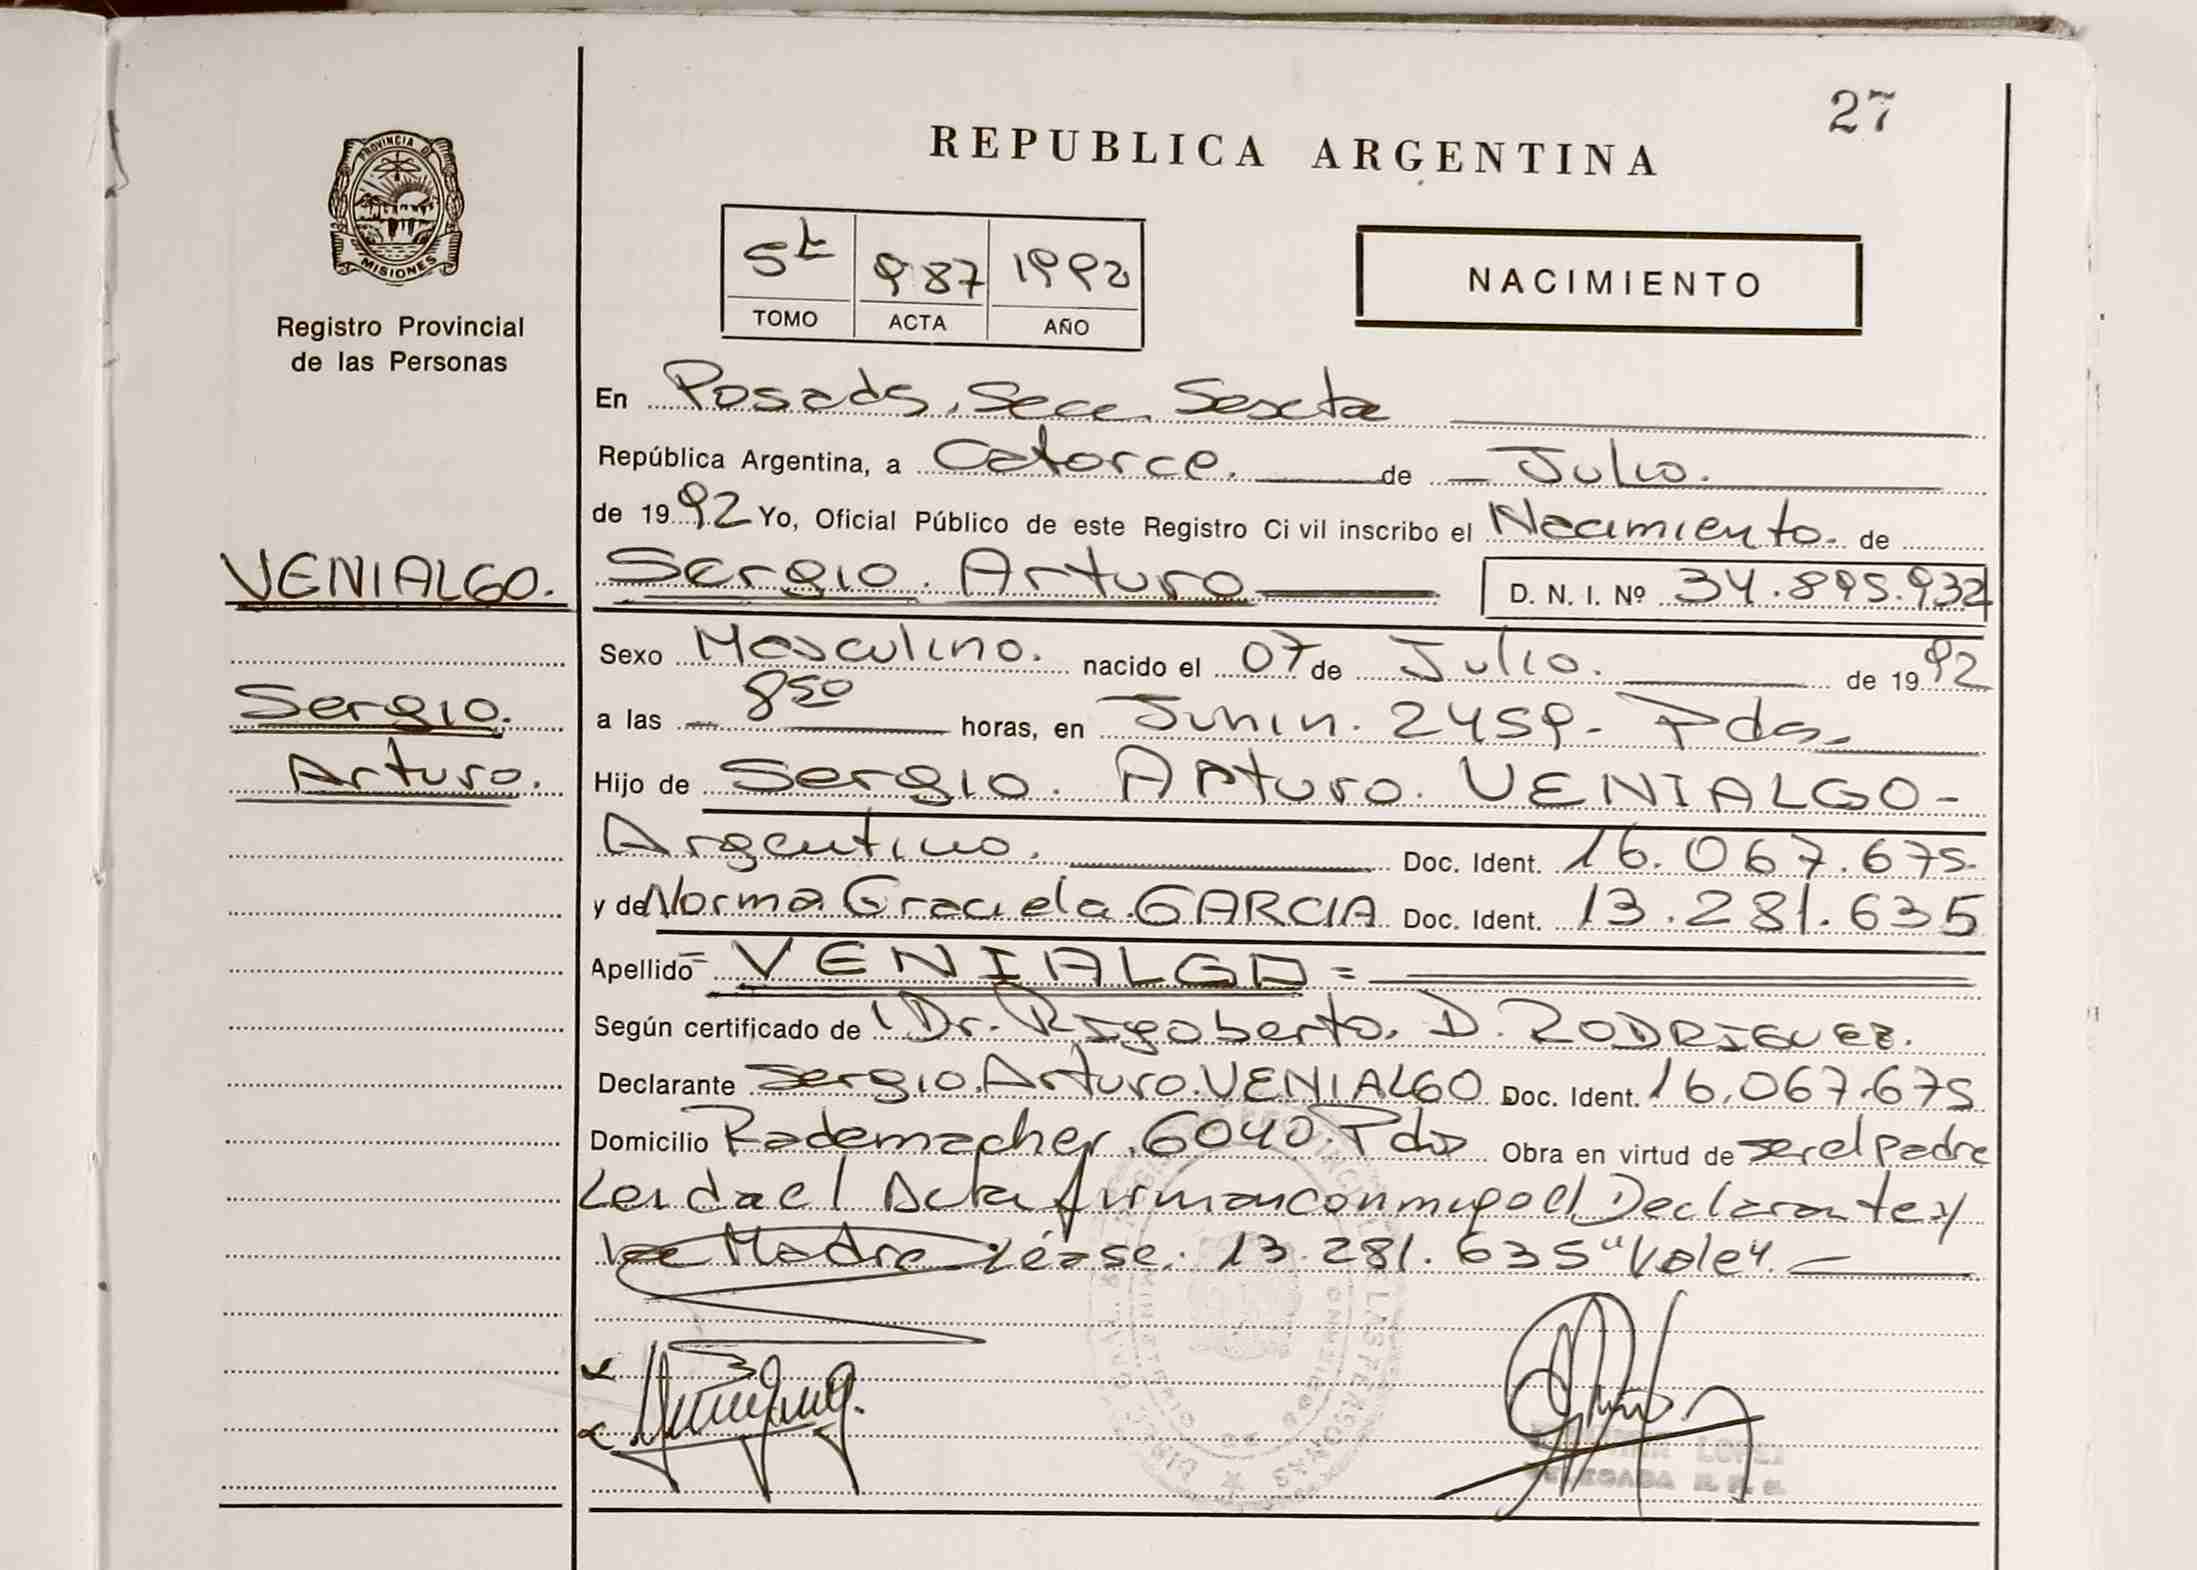 27
REPUBLICA ARGENTINA
PROVINCIA DE
MISIONES
Registro Provincial
de las Personas
5t 987 1992
TOMO ACTA AÑO
NACIMIENTO
En Posads. Secc. Sexta
República Argentina, a Catorce. de Julio.
de 1992 Yo, Oficial Público de este Registro Civil inscribo el Nacimiento. de
VENIALGO.
Sergio. Arturo D. N. I. Nº 34.895.932
Sexo Masculino. nacido el 07 de Julio. de 1992
Sergio.
a las 8 50 horas, en Junin. 2459- Pdas.
Arturo.
Hijo de Sergio. Arturo. VENIALGO-
Argentino. Doc. Ident. 16.067.675-
y de Norma Graciela GARCIA Doc. Ident. 13.281.635
Apellido = VENIALGO =
Según certificado de Dr. Rigoberto. D. RODRIGUEZ.
Declarante Sergio. Arturo. VENIALGO Doc. Ident. 16.067.675
Domicilio Rademacher. 6040. Pdas Obra en virtud de ser el padre
Leida el Acta firman conmigo el Declarante y
la Madre Léase: 13.281.635 "Vale".
LOPEZ
DELEGADA